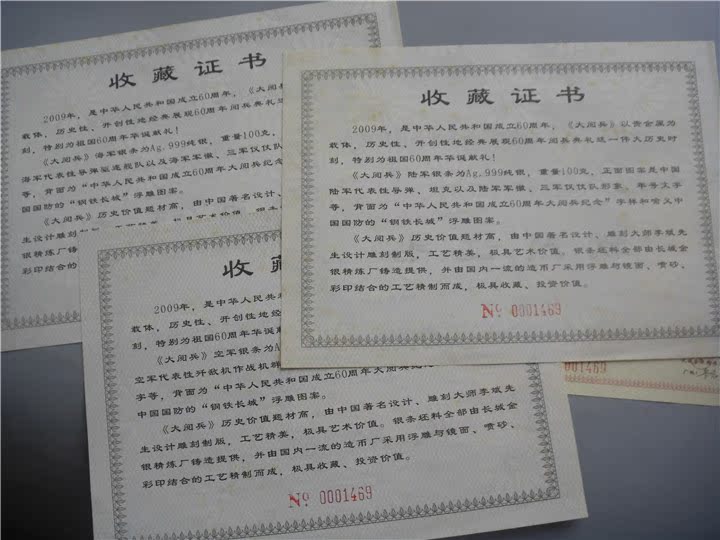 收藏证书
2009年，是中华人民共和国成立60周年，《大阅兵》
载体，历史性、开创性地经典展现60周年阅兵典礼这
刻，特别为祖国60周年华诞献礼！
《大阅兵》海军银条为Ag.999纯银，重量100克，
海军代表性导弹驱逐舰队以及海军军徽、三军仪仗队
等，背面为“中华人民共和国成立60周年大阅兵纪念
国国防的“钢铁长城”浮雕图案。
《大阅兵》历史价值题材高，由中国著名设计、
生设计雕刻
银精炼厂铸造
彩印结合的
收藏证书
2009年，是中华人民共和国成立60周年，《大阅兵》以贵金属为
载体，历史性、开创性地经典展现60周年阅兵典礼这一伟大历史时
刻，特别为祖国60周年华诞献礼！
《大阅兵》陆军银条为Ag.999纯银，重量100克，正面图案是中国
陆军代表性导弹、坦克以及陆军军徽、三军仪仗队形象、年号文字
等，背面为“中华人民共和国成立60周年大阅兵纪念”字样和喻义中
国国防的“钢铁长城”浮雕图案。
《大阅兵》历史价值题材高，由中国著名设计、雕刻大师李斌先
生设计雕刻制版，工艺精美，极具艺术价值。银条坯料全部由长城金
银精炼厂铸造提供，并由国内一流的造币厂采用浮雕与镜面、喷砂、
彩印结合的工艺精制而成，极具收藏、投资价值。
№ 0001469
收藏
2009年，是中华人民共和
载体，历史性、开创性地经
刻，特别为祖国60周年华诞献
《大阅兵》空军银条为A
空军代表性歼敌机作战机群
字等，背面为“中华人民共和国成立60周年大阅兵纪念
中国国防的“钢铁长城”浮雕图案。
《大阅兵》历史价值题材高，由中国著名设计、雕刻大师李斌先
生设计雕刻制版，工艺精美，极具艺术价值。银条坯料全部由长城金
银精炼厂铸造提供，并由国内一流的造币厂采用浮雕与镜面、喷砂、
彩印结合的工艺精制而成，极具收藏、投资价值。
№ 0001469
01469